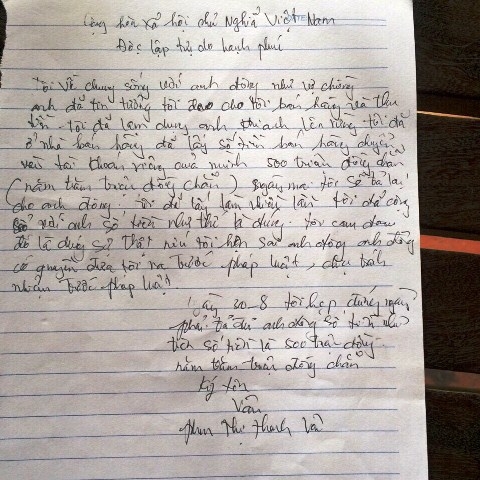 Cộng hòa xã hội chủ Nghĩa Việt Nam
Độc lập tự do hạnh phúc
Tôi về chung sống với anh đông như vợ chồng
anh đã tin tưởng tôi giao cho tôi bán hàng và thu
tiền. tôi đã lạm dụng anh khi anh lên rừng. tôi đã
ở nhà bán hàng đã lấy số tiền bán hàng chuyển
vào tài khoản riêng của mình 500 triệu đồng chẵn
(năm trăm triệu đồng chẵn) ngày mai tôi sẽ trả lại
cho anh đông. tôi đã lấy làm nhiều lần tôi đã cộng
với anh số tiền như thế là đúng tôi cam đoan
đó là đúng sự thật nếu tôi hôn sai anh đông anh đông
có quyền đưa tôi ra trước pháp luật, chịu trách
nhiệm trước pháp luật
Ngày 30-8 tôi hẹp đúng ngày
phải trả cho anh đông số tiền như
trên số tiền là 500 triệu đồng
năm trăm triệu đồng chẵn
ký tên
Vân
phan Thị thanh Vân